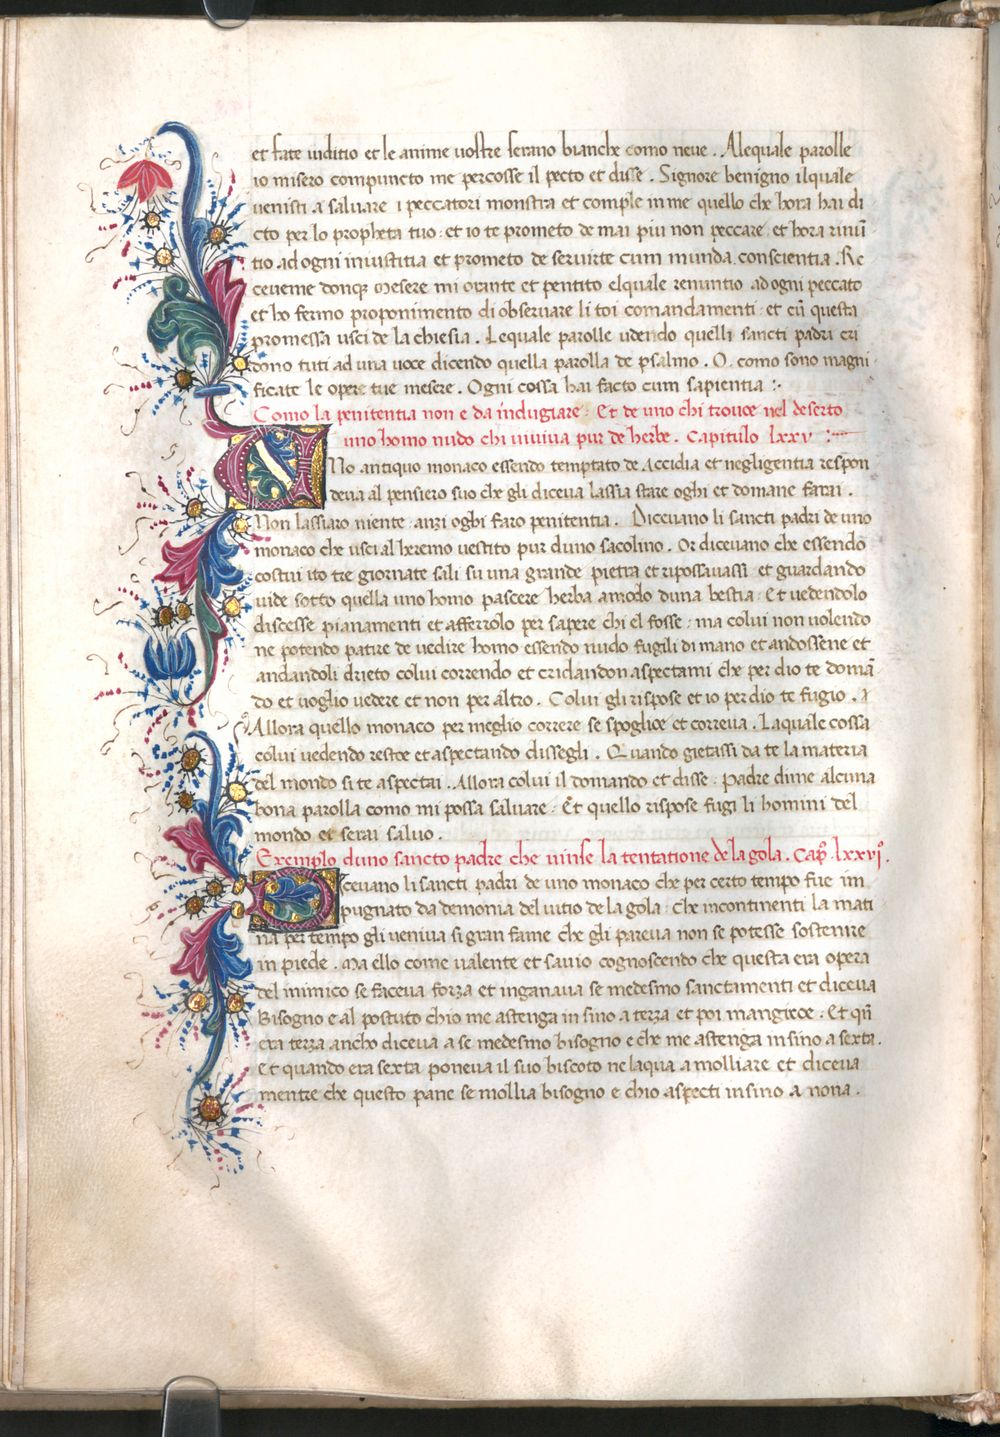 et fate iuditio et le anime uostre serano bianche como neue . Alequale parolle
io misero compuncto me percosse il pecto et disse . Signore benigno ilquale
uenisti a saluare i peccatori monstra et comple in me quello che hora hai di
cto per lo propheta tuo : et io te prometo de mai piu non peccare et hora rinũ
tio ad ogni iniustitia et prometo de seruirte cum munda conscientia . Re
ceueme donqȝ Mesere mi orante et pentito elquale renuntio ad ogni peccato
et ho fermo proponimento di obseruare li toi comandamenti : et cũ questa
promessa usci de la chiesia . Lequale parolle udendo quelli sancti padri cri
dono tuti ad una uoce dicendo quella parolla de psalmo . O . como sono magni
ficate le opere tue mesere . Ogni cossa hai facto cum sapientia :·
Como la penitentia non e da indugiare : Et de uno chi trouoe nel deserto
uno homo nudo chi uiuiua pur de herbe . Capitulo lxxv :~
UNo antiquo monaco essendo temptato de Accidia et negligentia respon
deua al pensiero suo che gli diceua lassia stare oghi et domane farai .
Non lassiaro niente anzi oghi faro penitentia . Diceuano li sancti padri de uno
monaco che usci al heremo uestito pur duno sacolino . Or diceuano che essendo
costui ito tre giornate sali su una grande pietra et ripossauassi et guardando
uide sotto quella uno homo pascere herba a modo duna bestia : Et uedendolo
discesse pianamenti et afferrolo per sapere chi el fosse : ma colui non uolendo
ne potendo patire de uedire homo essendo nudo fugili di mano et andossene et
andandoli drieto colui correndo et cridandon aspectami che per dio te domã
do et uoglio uedere et non per altro . Colui gli rispose et io per dio te fugio .
Allora quello monaco per meglio correre se spoglioe et correua . Laquale cossa
colui uedendo restoe et aspectando dissegli . Quando gietassi da te la materia
del mondo si te aspectai . Allora colui il domando et disse : Padre dime alcuna
bona parolla como mi possa saluare : Et quello rispose fugi li homini del
mondo et serai saluo .
Exemplo duno sancto padre che uinse la tentatione de la gola . Cap̃ . lxxvi̊ .
Diceuano li sancti padri de uno monaco che per certo tempo fue im
pugnato da demonia del uitio de la gola : Che incontinenti la mati
na per tempo gli ueniua si gran fame che gli pareua non se potesse sostenire
in piede . Ma ello come ualente et sauio cognoscendo che questa era opera
del inimico se faceua forza et inganaua se medesmo sanctamenti et diceua
Bisogno e al postuto chio me astenga in sino a terza et poi mangiece : Et qñ
era terza ancho diceua a se medesmo bisogno e che me astenga in sino a sexta .
Et quando era sexta poneua il suo biscoto ne laqua a molliare et diceua
mentre che questo pane se mollia bisogno e chio aspecti insino a nona .